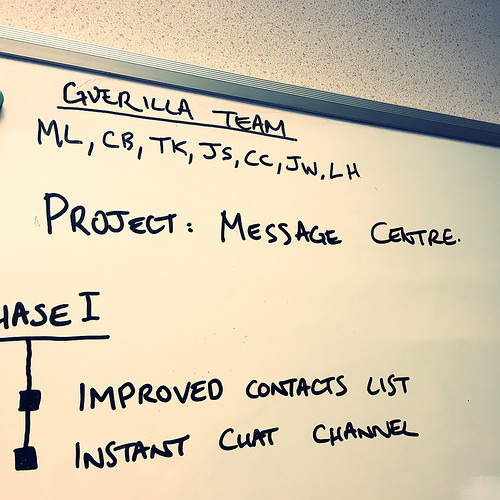 GUERILLA TEAM
ML, CB, TK, JS, CC, JW, LH
PROJECT: MESSAGE CENTRE.
HASE I
IMPROVED CONTACTS LIST
INSTANT CHAT CHANNEL